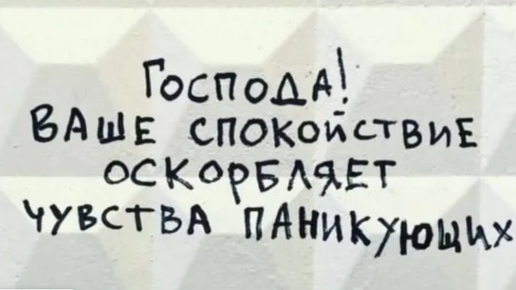 Господа!
ВАШЕ СПОКОЙСТВИЕ
ОСКОРБЛЯЕТ
ЧУВСТВА ПАНИКУЮЩИХ